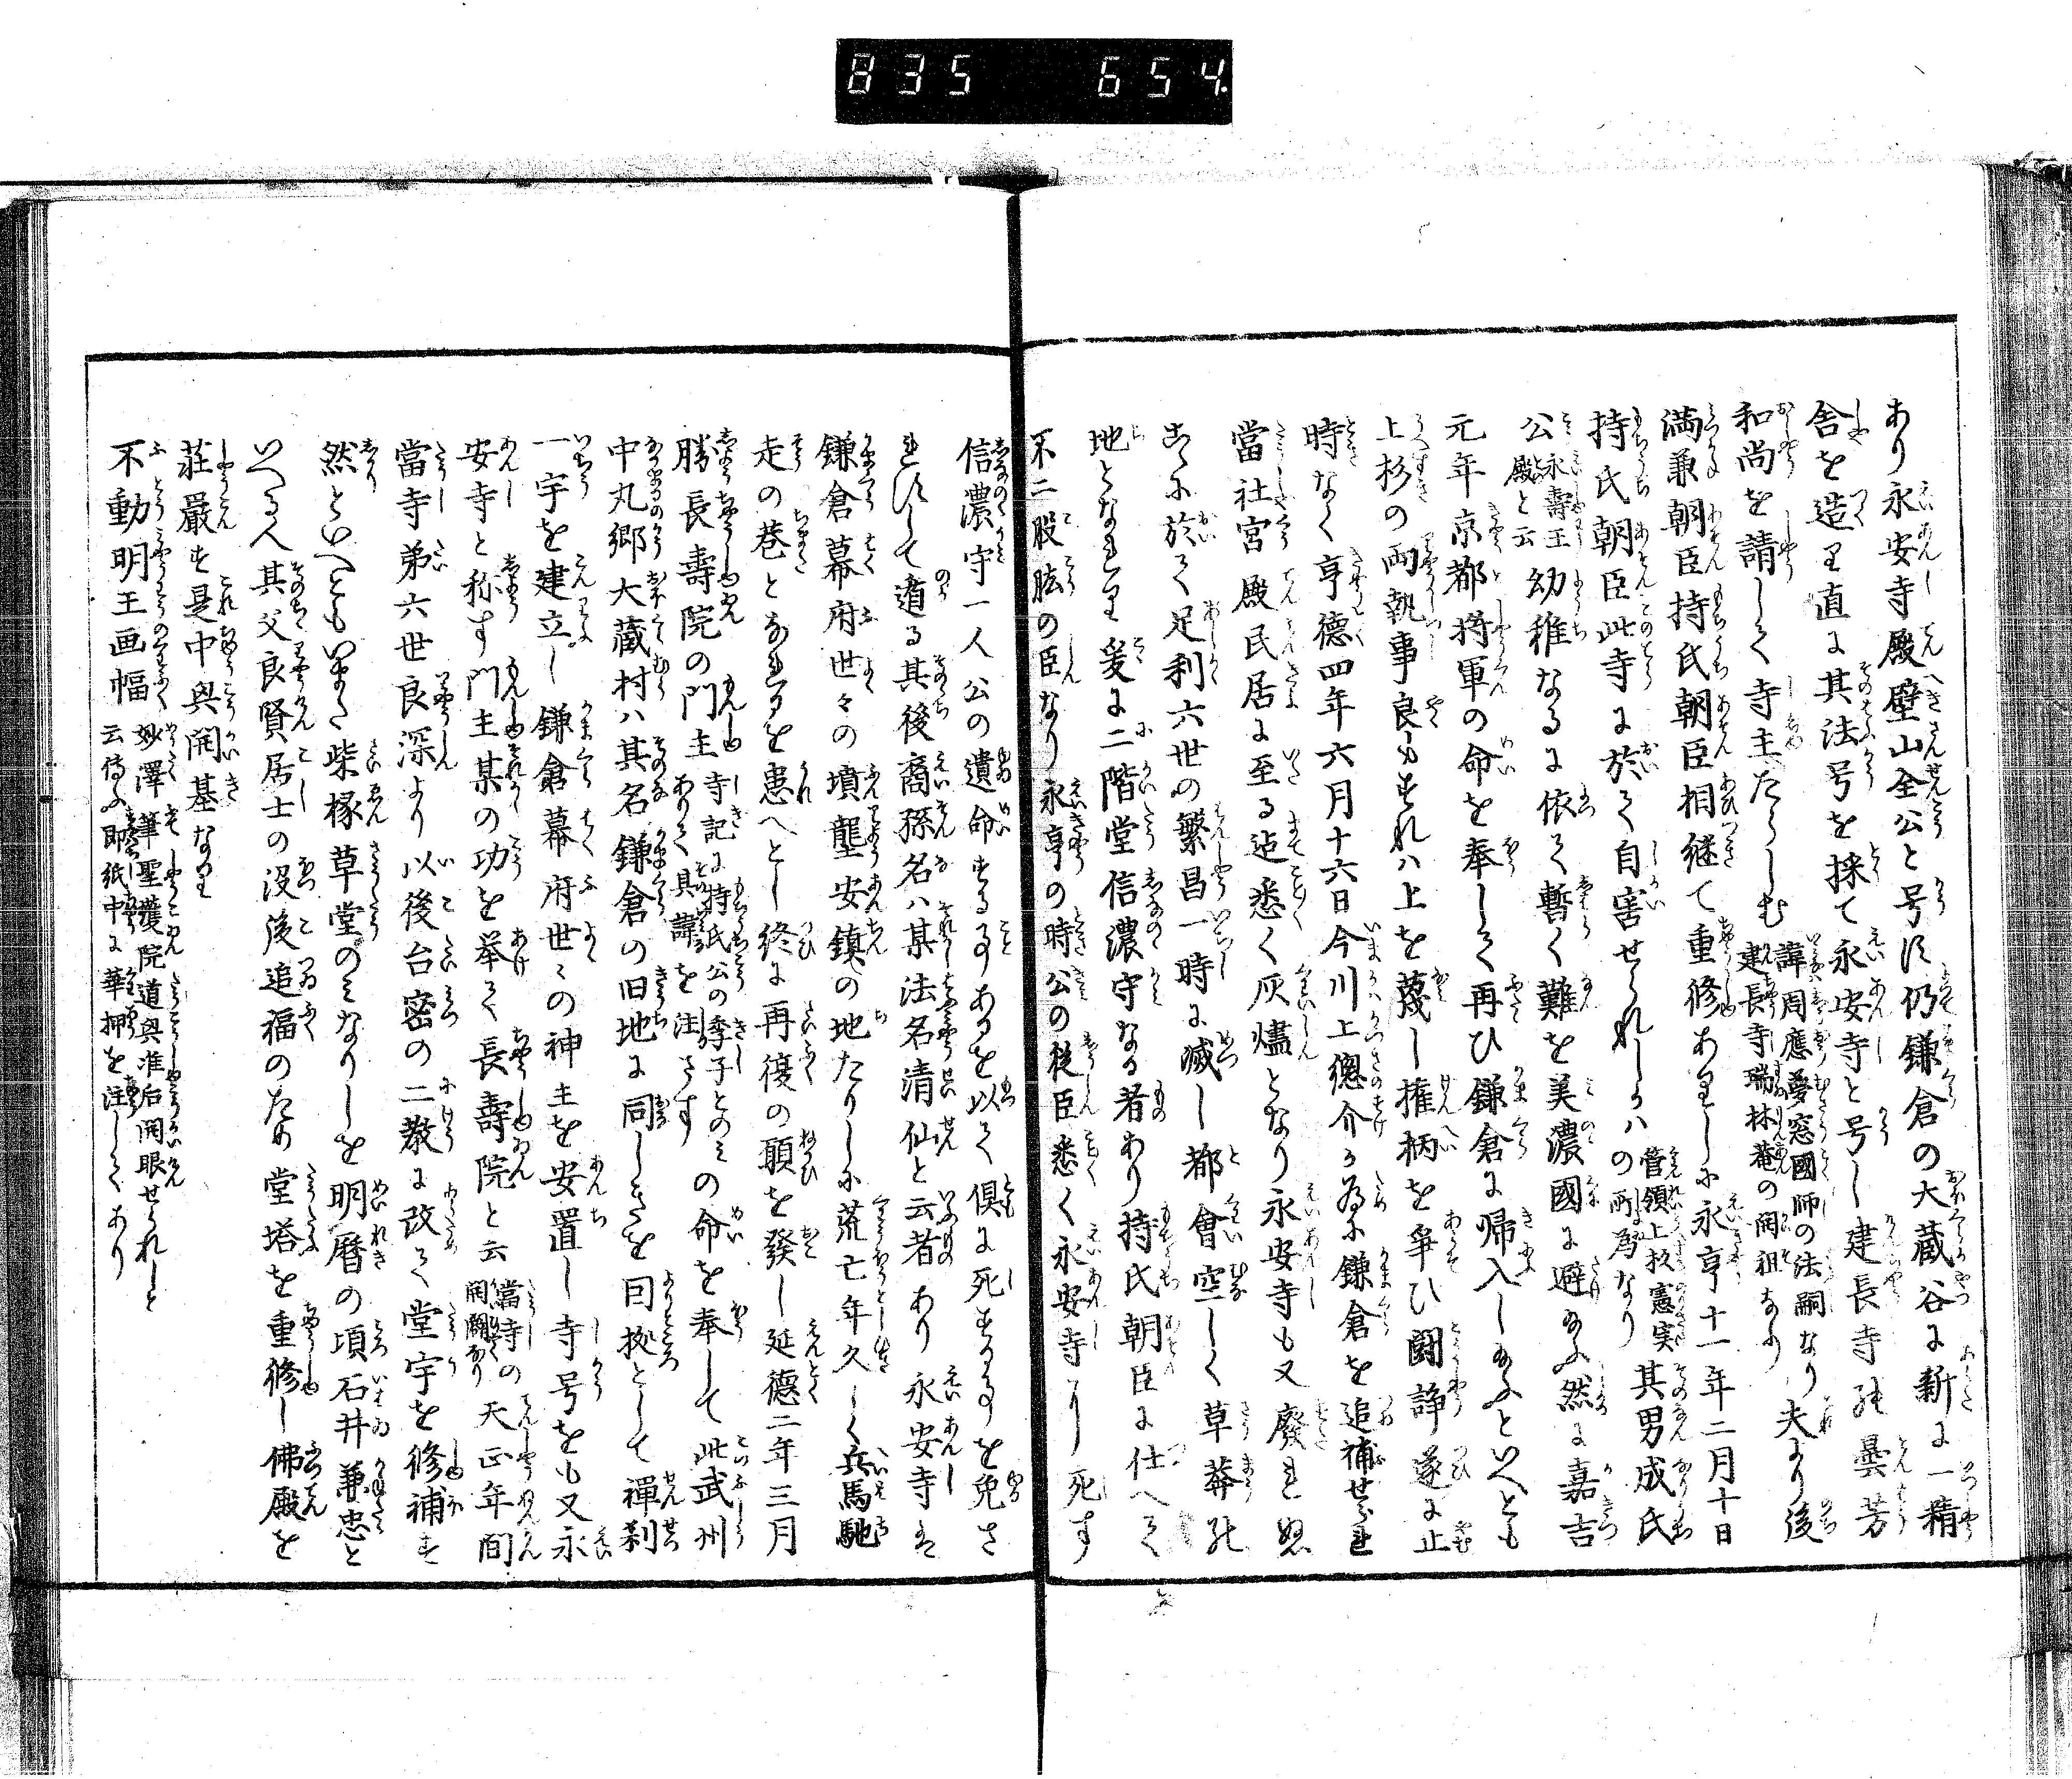 835 654.
あり永安寺殿壁山全公と号に仍鎌倉の大蔵谷に新に一精
舎を造り直に其法号を採て永安寺と号し建長寺の曇芳
和尚を請して寺主たらしむ
諱周應夢窓國師の法嗣なり
建長寺瑞林菴の開祖なり
夫より後
満兼朝臣持氏朝臣相継て重修ありしに永亨十一年二月十日
持氏朝臣此寺に於て自害せられしハ
管領上杦憲実
の所為なり
其男成氏
公
永壽王
殿と云
幼稚なるに依て暫く難を美濃國に避給ふ然に嘉吉
元年京都将軍の命を奉して再ひ鎌倉に帰入し給ふといへとも
上杉の両執事良もすれハ上を蔑し権柄を争ひ闘諍遂に止
時なく亨德四年六月十六日今川上總介か為に鎌倉を追補せられ
當社宮殿民居に至る迠悉く灰燼となり永安寺も又廢れぬ
茲に於て足利六世の繁昌一時に滅し都會空しく草莽の
地となれり爰に二階堂信濃守なる者あり持氏朝臣に仕へて
不二股肱の臣なり永亨の時公の従臣悉く永安寺に死す
信濃守一人公の遺命する事あるを以て倶に死する事を免さ
れすして遁る其後裔孫名ハ某法名清仙と云者あり永安寺は
鎌倉幕府世々の墳壟安鎮の地たりしに荒亡年久しく兵馬馳
走の巷となれるを患へとし終に再復の願を發し延德二年三月
勝長壽院の門主
寺記に持氏公の季子とのミ
ありて其諱を注さす
の命を奉して此武州
中丸郷大蔵村ハ其名鎌倉の旧地に同しきを因拠として禪刹
一宇を建立し鎌倉幕府世々の神主を安置し寺号をも又永
安寺と称す門主某の功を挙て長壽院と云
當寺の
開闢なり
天正年間
當寺第六世良深より以後台密の二教に改て堂宇を修補す
然といへともいまた柴椽草堂のミなりしを明暦の頃石井兼忠と
いへる人其父良賢居士の没後追福のため堂塔を重修し佛殿を
莊嚴す是中興開基なり
不動明王画幅
妙澤筆聖護院道興准后開眼せられしと
云傳ふ即紙中に華押を注してあり